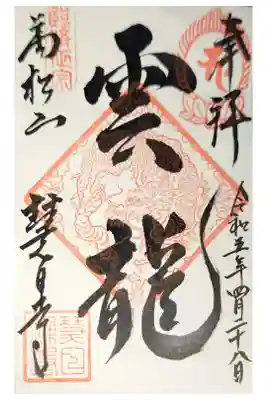 奉拝
令和五年四月二十八日
雲龍
萬松山
慧日寺